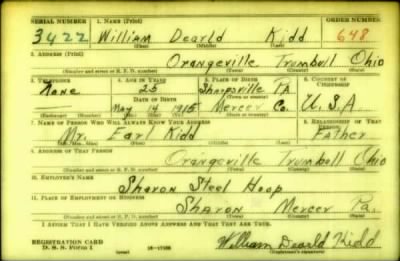 SERIAL NUMBER 1. NAME (Print) ORDER NUMBER
3422 William Dearld Kidd 648
(First) (Middle) (Last)
2. ADDRESS (Print)
Orangeville Trumbull Ohio
(Number and street or R. F. D. number) (Town) (County) (State)
3. TELEPHONE 4. AGE IN YEARS 5. PLACE OF BIRTH 6. COUNTRY OF CITIZENSHIP
None 25 Sharpsville Pa
DATE OF BIRTH (Town or county)
May 14 1915 Mercer Co. U.S.A
(Exchange) (Number) (Mo.) (Day) (Yr.) (State or country)
7. NAME OF PERSON WHO WILL ALWAYS KNOW YOUR ADDRESS 8. RELATIONSHIP OF THAT PERSON
Mr. Earl Kidd Father
(Mr., Mrs., Miss) (First) (Middle) (Last)
9. ADDRESS OF THAT PERSON
Orangeville Trumbull Ohio
(Number and street or R. F. D. number) (Town) (County) (State)
10. EMPLOYER'S NAME
Sharon Steel Hoop
11. PLACE OF EMPLOYMENT OR BUSINESS
Sharon Mercer Pa.
(Number and street or R. F. D. number) (Town) (County) (State)
I AFFIRM THAT I HAVE VERIFIED ABOVE ANSWERS AND THAT THEY ARE TRUE.
REGISTRATION CARD
D. S. S. FORM 1 (over) William Dearld Kidd
(Registrant's signature)